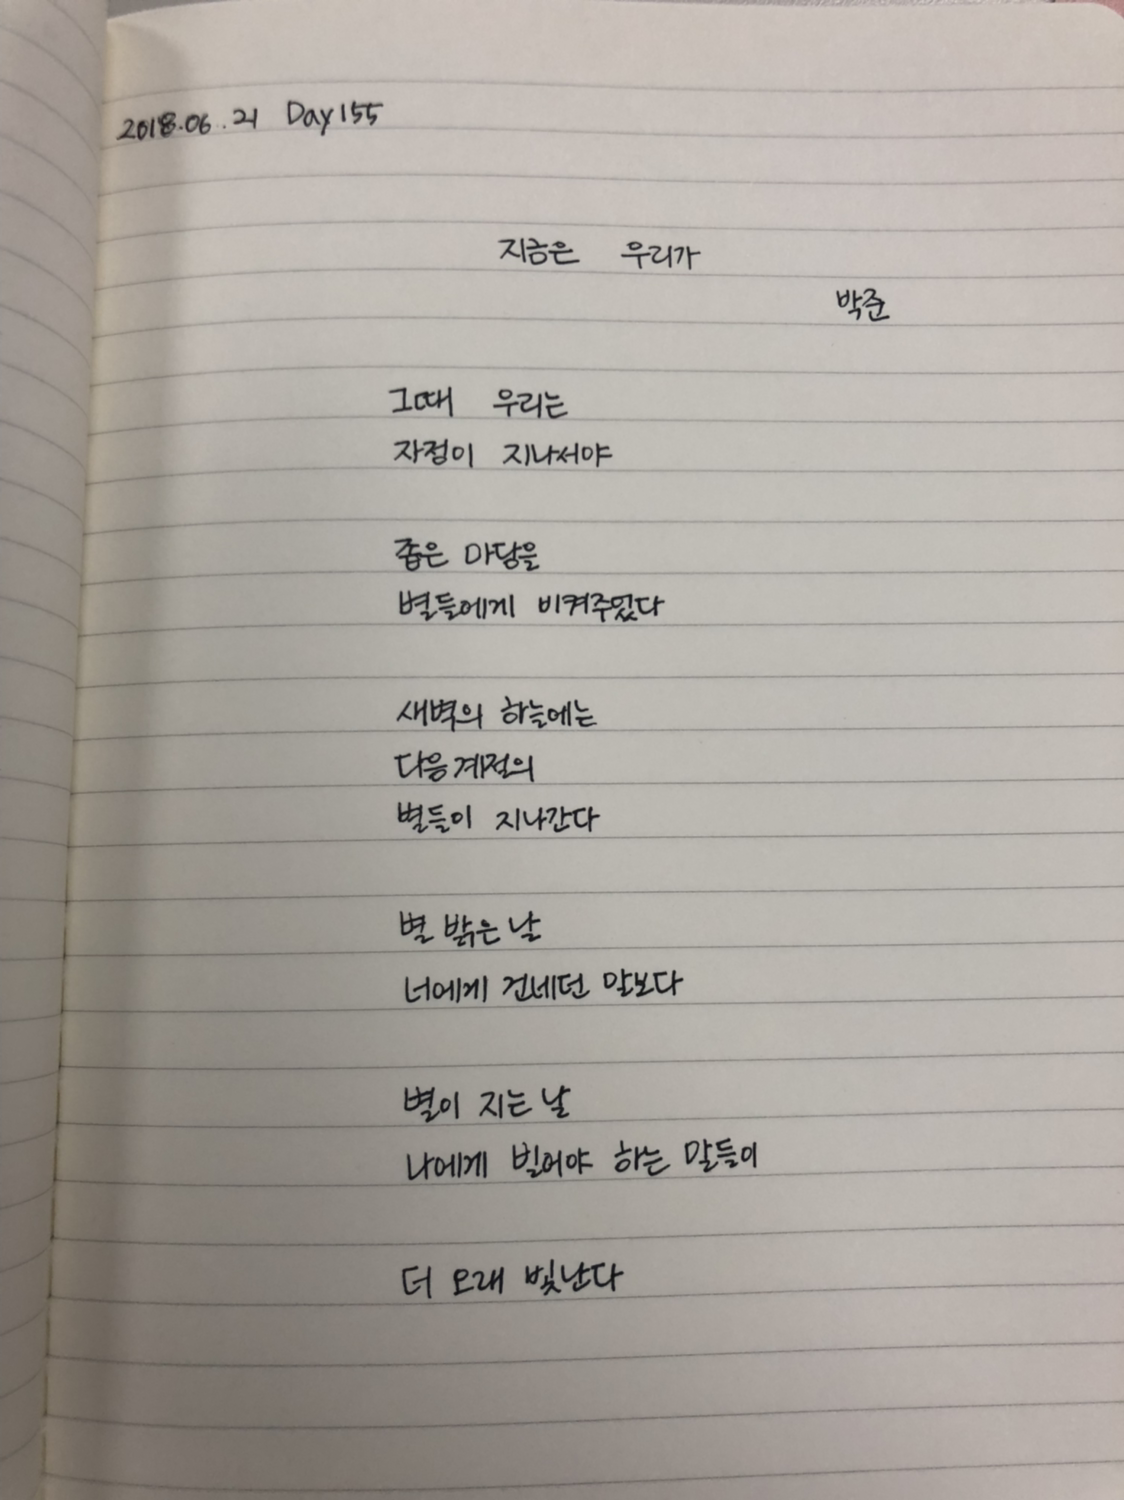 2018.06.21 Day155
지금은 우리가
박준
그때 우리는
자정이 지나서야
좁은 마당을
별들에게 비켜주었다
새벽의 하늘에는
다음 계절의
별들이 지나간다
별 밝은 날
너에게 건네던 말보다
별이 지는 날
나에게 빌어야 하는 말들이
더 오래 빛난다